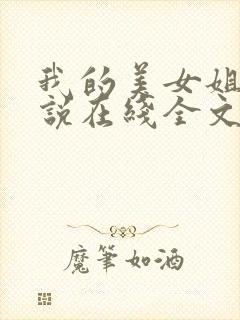 我的美女姐
說在綫全文
魔筆如酒